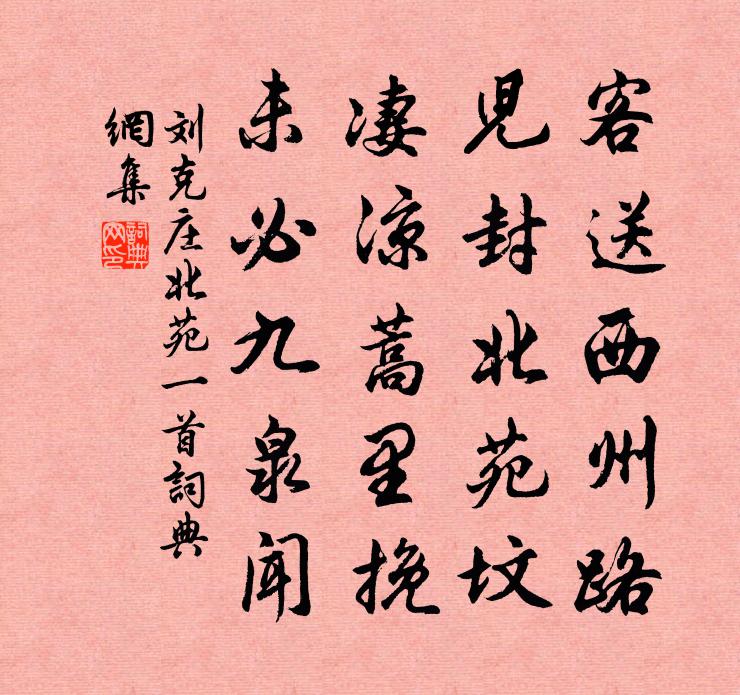 客送西州路
児封北苑坟
凄凉蒿里挽
未必九泉闻
刘克庄北苑一首詞典
網集
詞典
网印